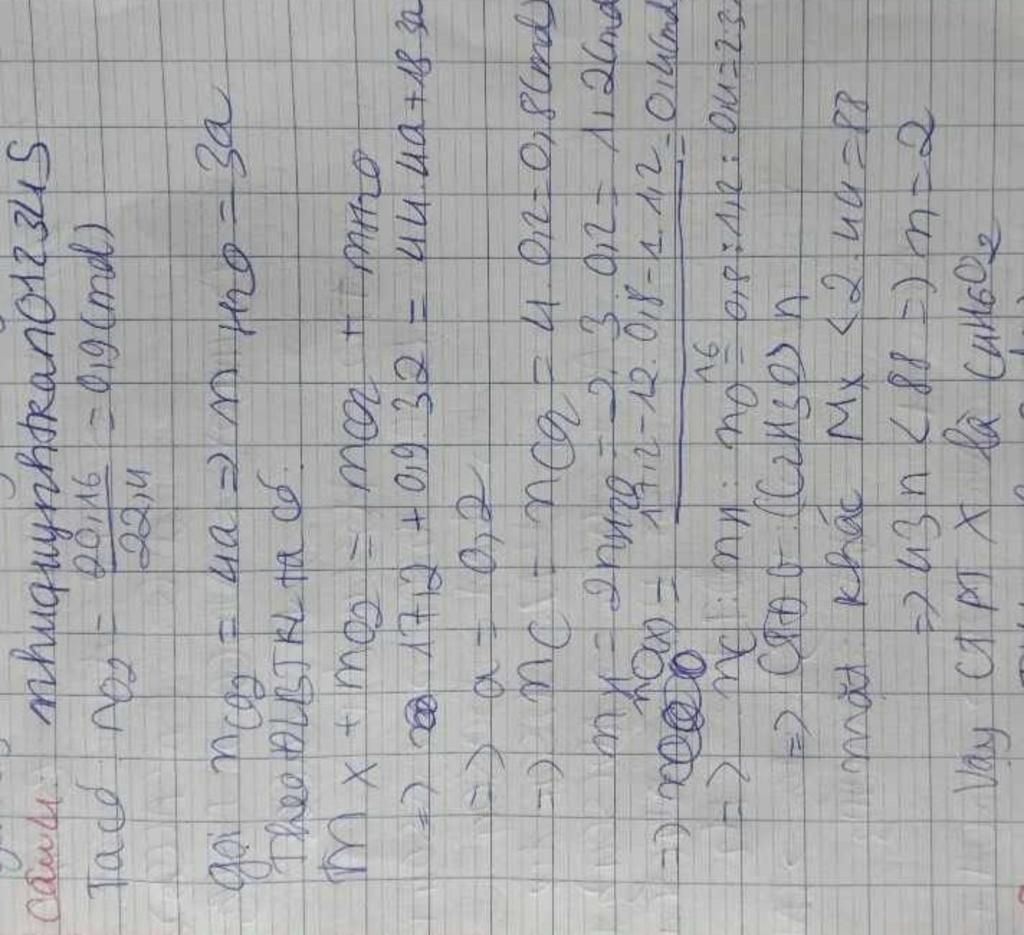 Câu 4: nhuquynhtran012345
Ta có nO2 = 20,16 / 22,4 = 0,9 (mol)
gọi nCO2 = 4a => nH2O = 3a
Theo ĐLBTKL ta có:
mX + mO2 = mCO2 + mH2O
=> 17,2 + 0,9.32 = 44.4a + 18.3a
=> a = 0,2
=> nC = nCO2 = 4.0,2 = 0,8 (mol)
nH = 2nH2O = 2.3.0,2 = 1,2 (mol)
=> nO(X) = 17,2 - 12.0,8 - 1.1,2 / 16 = 0,4 (mol)
=> nC : nH : nO = 0,8 : 1,2 : 0,4 = 2:3
=> CTĐG: (C2H3O)n
mặt khác MX < 2.44 = 88
=> 43n < 88 => n = 2
Vậy CTPT X là C4H6O2